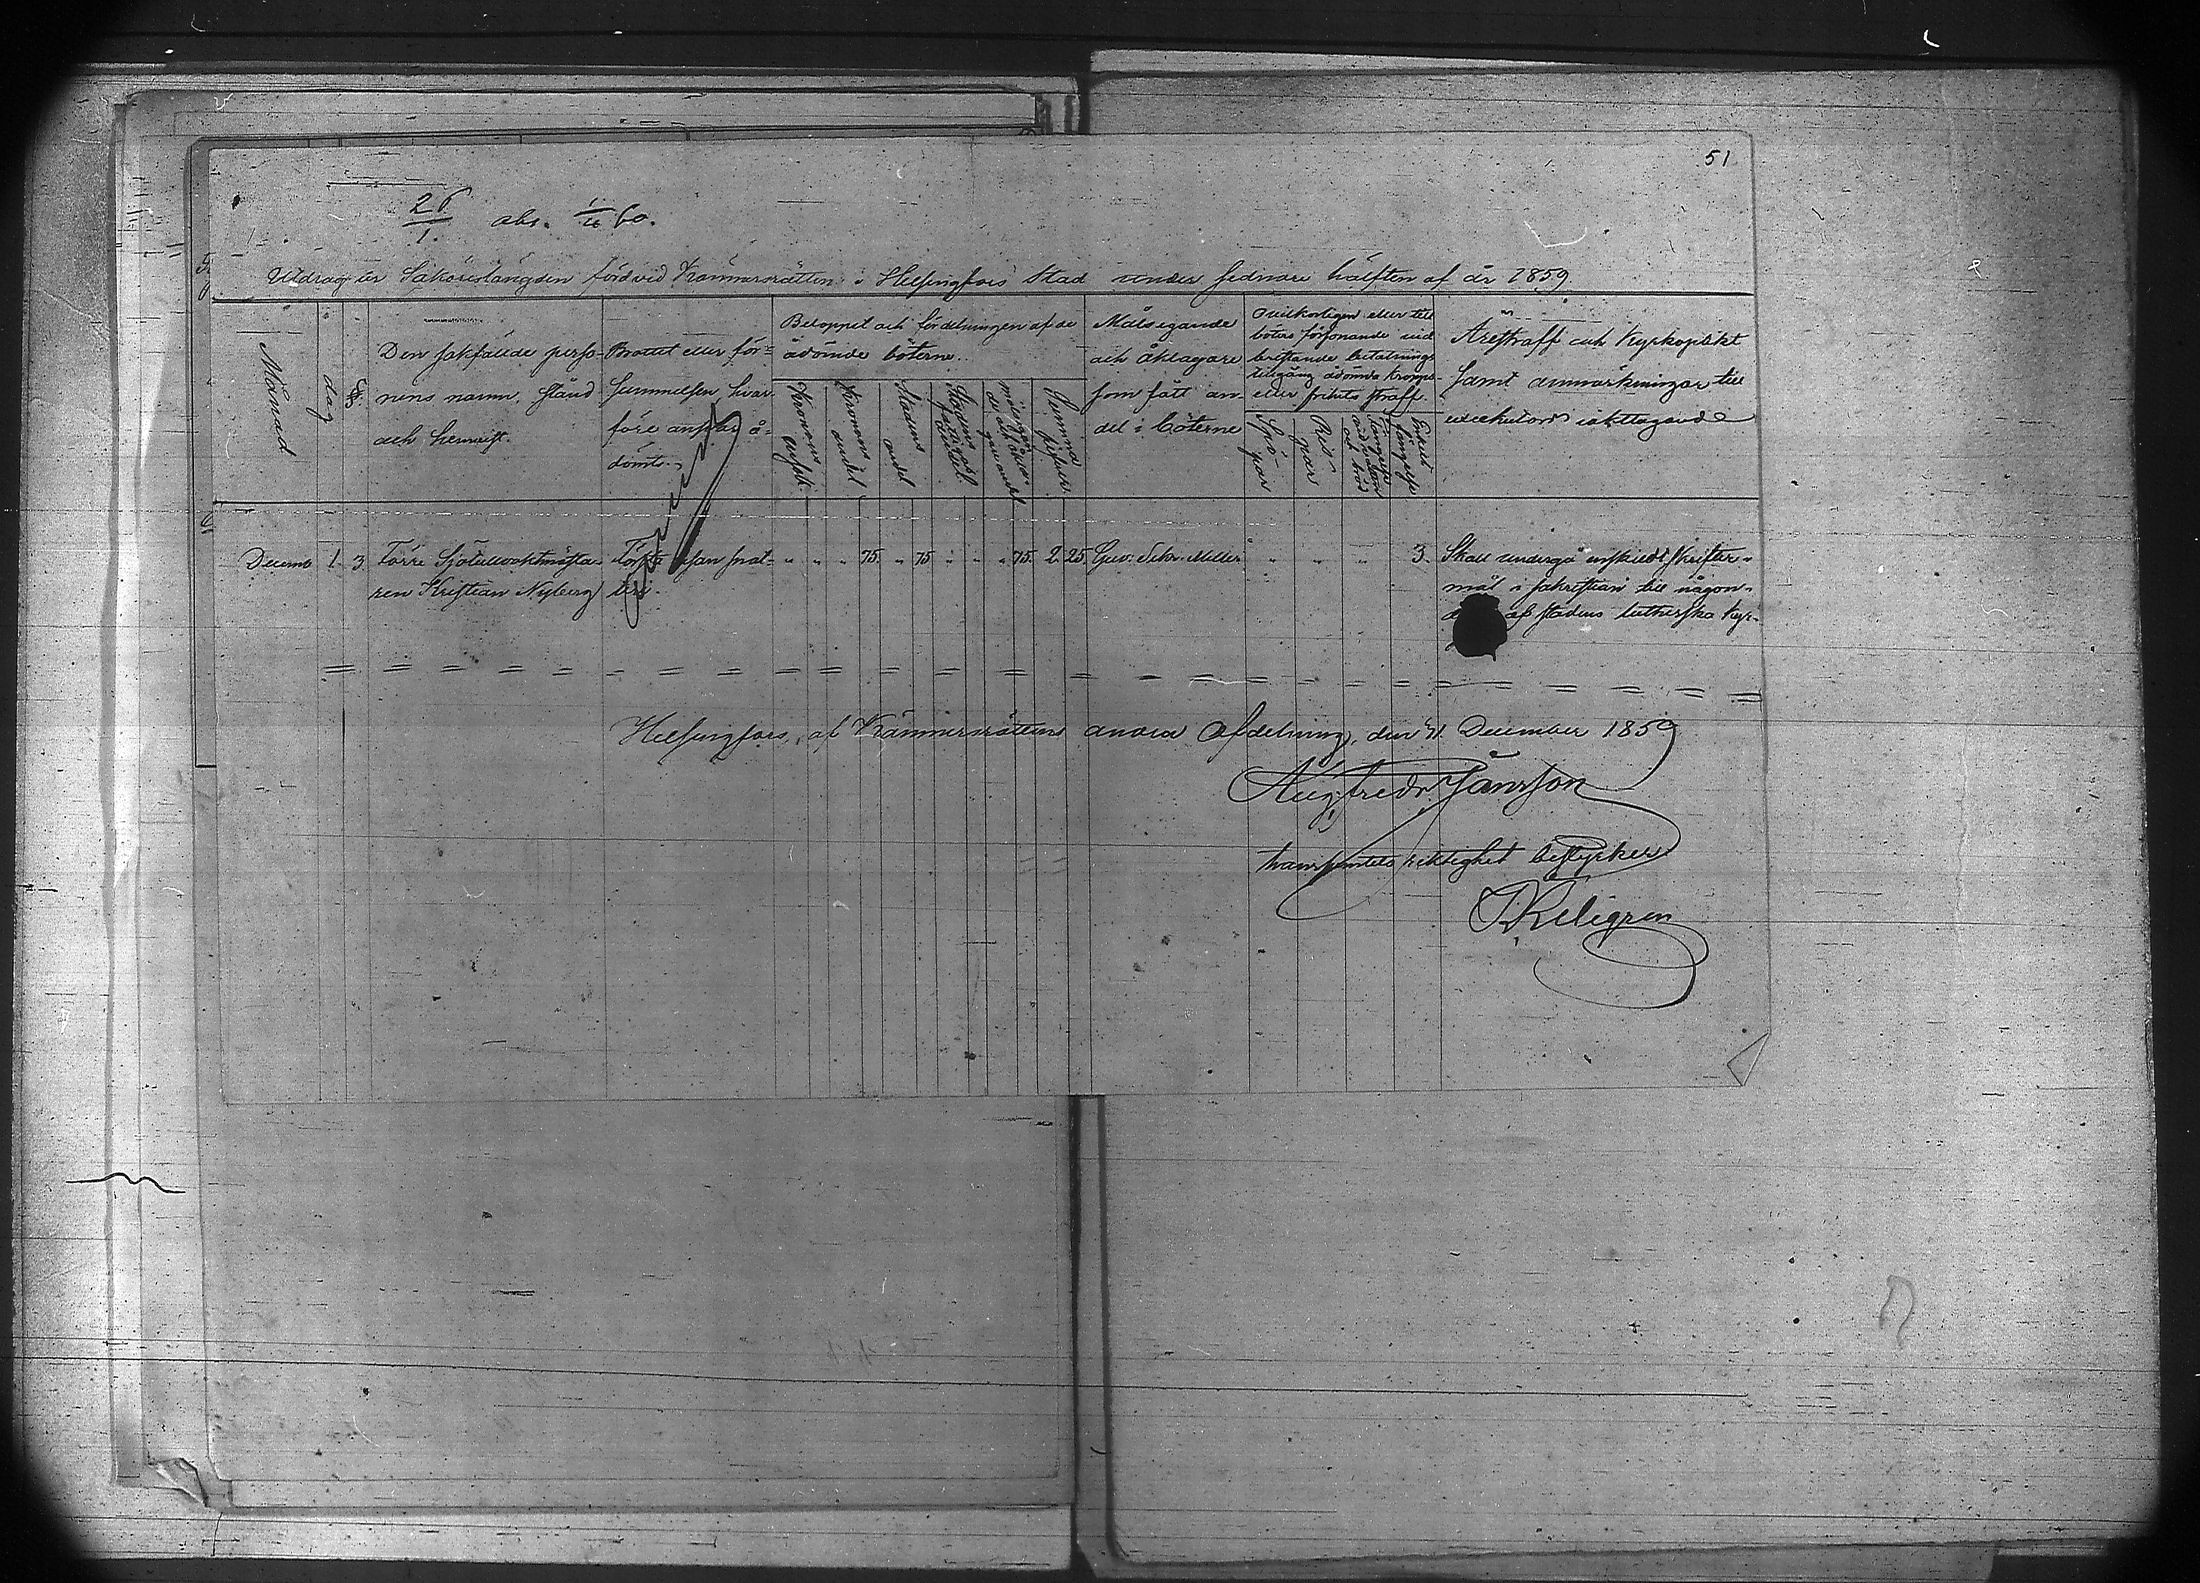 51
26/1. abs. 60.
Utdrag ur Saköreslängden förd vid Kämnersrätten i Helsingfors Stad under sednare hälften af år 1859
Månad
dag
§§.
Den sakfällde perso-
nens namn, stånd
och hemvist.
Brottet eller för-
summelsen, hvar-
före ansvar å-
dömts.
Beloppet och fördelningen af de
ådömde böterne.
Kronans ensak.
Kronans andel
Stadens andel
Summa
Målsegande
och åklagare
som fått an-
del i böterne
Ovilkorligen eller till
böters försonande vid
bristande betalnings
tillgång ådömda kropps-
eller frihets straff.
Spö-
par
Ris
par
Enkelt fängelse
Ärestraff och Kyrkoplikt
samt anmärkningar till
exekutors iakttagande
Decem 1. 3. Förre Sjötullvaktmästa- Första resan snat- " " " 75. " 75 " " " 75. 2. 25. Guv: Sekr: Meller " " " 3. Skall undergå enskildt skrifter-
ren Kristian Nyberg teri. mål i sakristian till någon-
af stadens lutherska kyr-
Helsingfors, af Kämnersrättens andra Afdelning, den 31 December 1859
Aug: Fredr. Jansson
transsumtets riktighet bestyrker